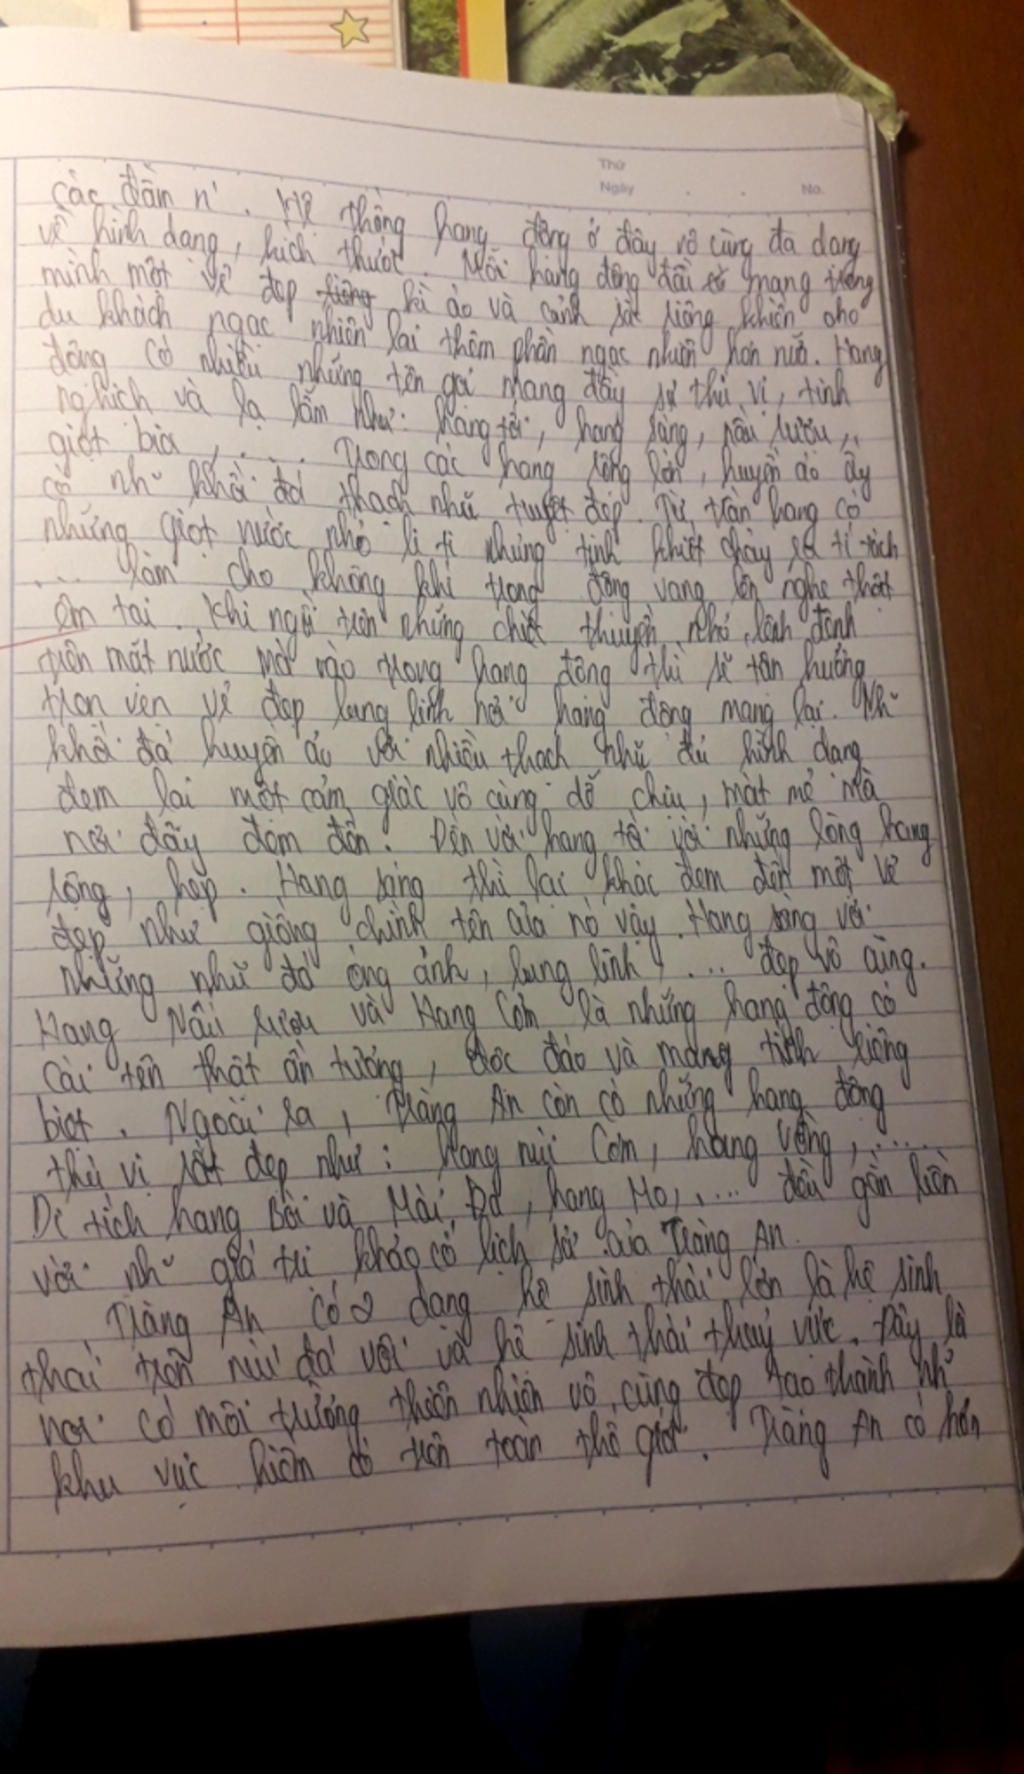 Thứ
Ngày . . No.
các đầm n'. Hệ thống hang động ở đây vô cùng đa dạng
về hình dạng, kích thước. Mỗi hang động đều mang trong
mình một vẻ đẹp kì ảo và cảnh sắc riêng khiến cho
du khách ngạc nhiên lại thêm phần ngạc nhiên hơn nữa. Hang
động có nhiều những tên gọi mang đầy sự thú vị, tinh
nghịch và lạ lẫm như: hang tối, hang sáng, nấu rượu,..
giọt bia, .... Trong các hang rộng lớn, huyền ảo ấy
có nh~ khối đá thạch nhũ tuyệt đẹp. Từ trần hang có
những giọt nước nhỏ li ti nhưng tinh khiết chảy ra tí tách
... làm cho không khí trong động vang lên nghe thật
êm tai. Khi ngồi trên những chiếc thuyền nhỏ, lênh đênh
trên mặt nước mà vào trong hang động thì sẽ tận hưởng
trọn vẹn vẻ đẹp lung linh nơi hang động mang lại. Nh~
khối đá huyền ảo với nhiều thạch nhũ đủ hình dạng
đem lại một cảm giác vô cùng dễ chịu, mát mẻ mà
nơi đây đem đến. Đến với hang tối với những lòng hang
rộng, hẹp. Hang sáng thì lại khác đem đến một vẻ
đẹp như giống chính tên của nó vậy. Hang sáng với
những nhũ đá óng ánh, lung linh, ... đẹp vô cùng.
Hang Nấu rượu và Hang Cơm là những hang động có
cái tên thật ấn tượng, độc đáo và mang tính riêng
biệt. Ngoài ra, Tràng An còn có những hang động
thú vị rất đẹp như: hang núi Cơm, hang Vồng,.....
Di tích hang Bói và Mái Đá, hang Mo,.... đều gắn liền
với nh~ giá trị khảo cổ lịch sử của Tràng An.
Tràng An có 2 dạng hệ sinh thái lớn là hệ sinh
thái trên núi đá vôi và hệ sinh thái thuỷ vực. Đây là
nơi có môi trường thiên nhiên vô cùng đẹp tạo thành nh~
khu vực hiếm có trên toàn thế giới. Tràng An có hơn